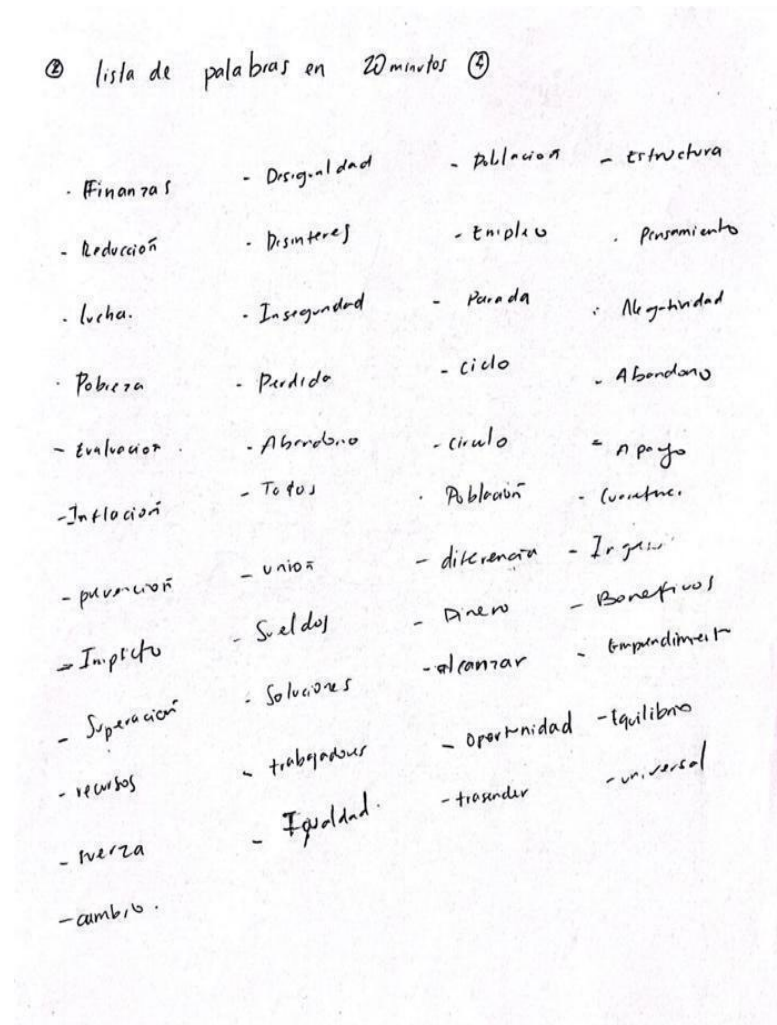 ② lista de palabras en 20 minutos ④
- Finanzas
- Reducción
- lucha.
- Pobreza
- Evaluacion.
- Inflación
- prevención
- Impacto
- Superación
- recursos
- fuerza
- cambio.
- Desigualdad
- Desinteres
- Inseguridad
- Perdida
- Abandono
- Todos
- unión
- Sueldos
- Soluciones
- trabajadores
- Igualdad.
- Poblacion
- Empleo
- Parada
- ciclo
- circulo
- Población
- diferencia
- Dinero
- alcanzar
- oportunidad
- trasender
- Estructura
- Pensamiento
- Negatividad
- Abandono
- Apoyo
- Beneficios
- Equilibrio
- universal